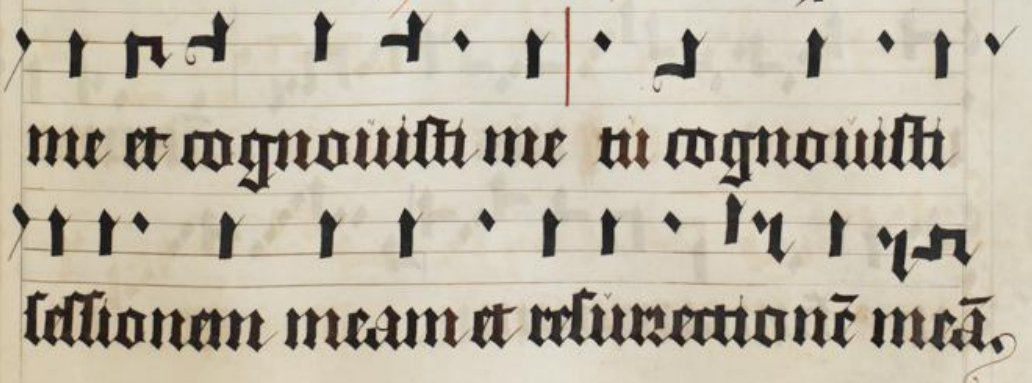 me et cognouisti me tu cognouisti
sessionem meam et resurrectionē meā.